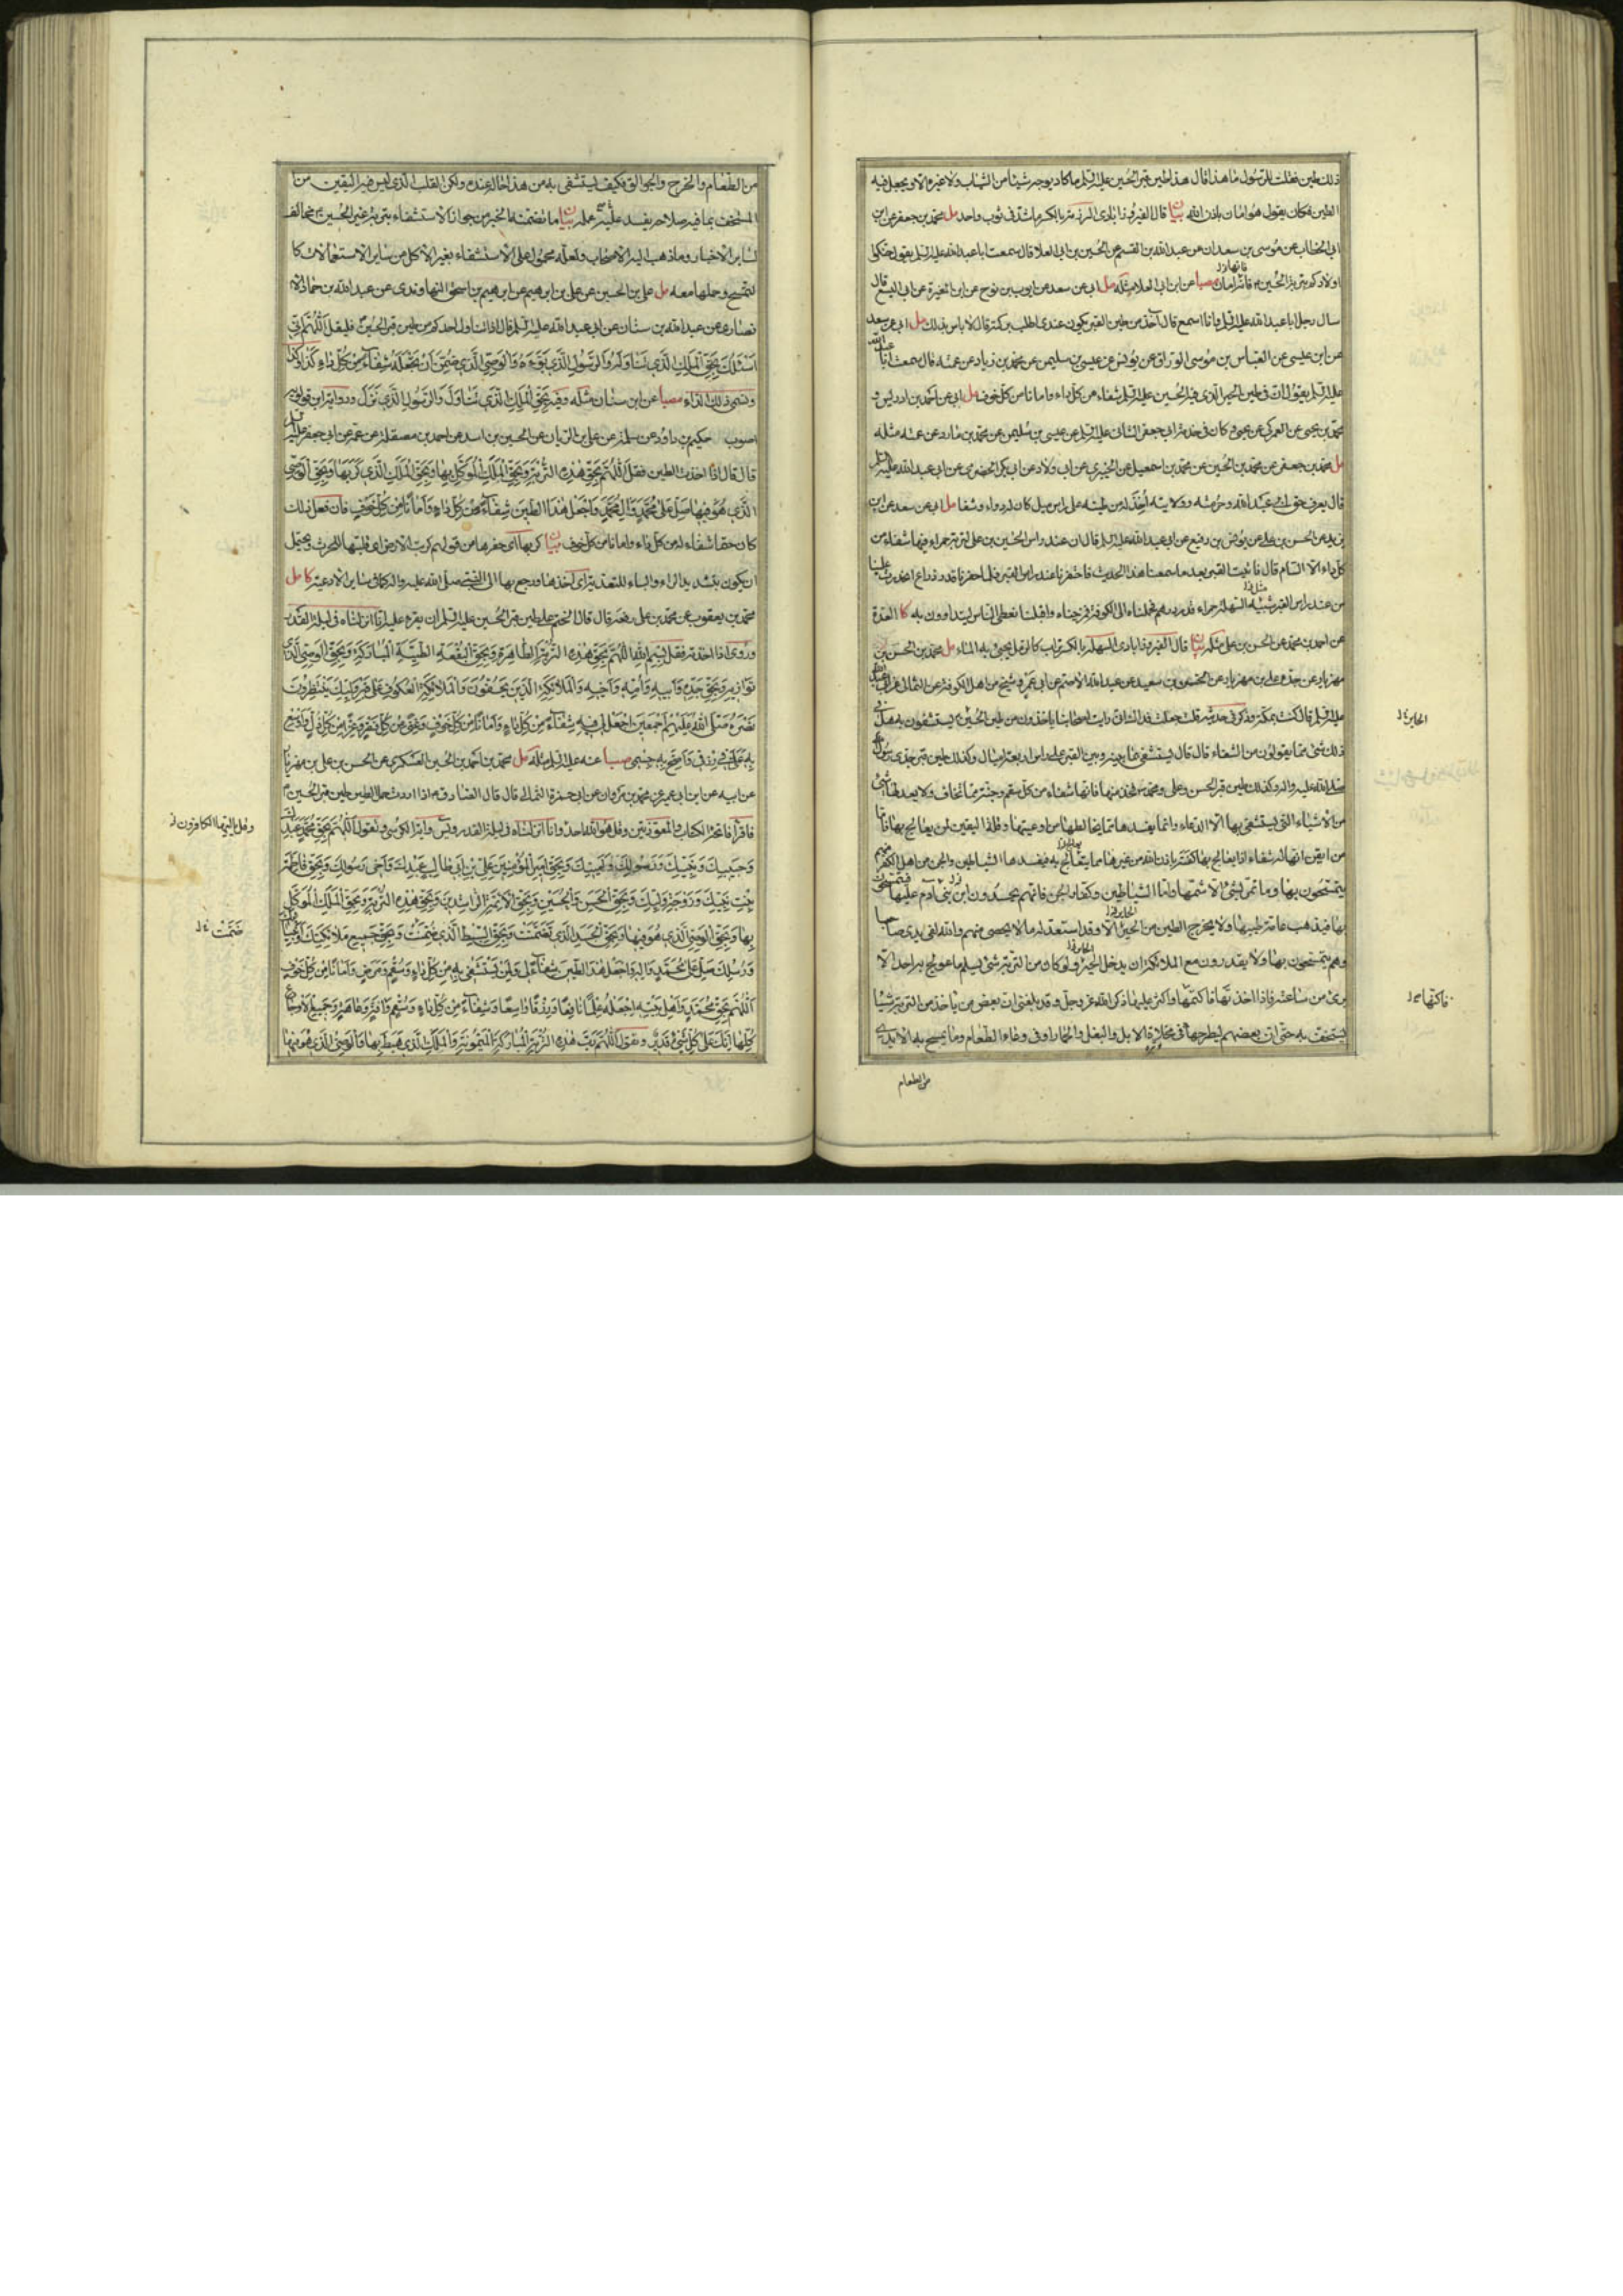 ذلك طين فقلت للرسول ما هذا قال هذا طين قبر الحسين عليه السلم ما كاد يوجه شيئا من الثياب ولا غيره الا ويجعل فيه
الطين فكان يقول هو امان باذن الله بيان قال الفيروزابادى الرزمة بالكسر ما شد فى ثوب واحد مل محمد بن جعفر عن ابن
ابى الخطاب عن موسى بن سعدان عن عبد الله بن القسم عن الحسين بن ابى العلا قال سمعت ابا عبد الله عليه السلم يقول حنكوا
اولادكم بتربة الحسين فانه امان مصبا عن ابن ابى العلا مثله مل ابى عن سعد عن ايوب بن نوح عن ابن المغيرة عن ابى اليسع قال
سال رجل ابا عبد الله عليه السلم وانا اسمع قال آخذ من طين القبر يكون عندى اطلب بركته قال لا باس بذلك مل ابى عن سعد
عن ابن عيسى عن العباس بن موسى الوراق عن يونس عن عيسى بن سليمن عن محمد بن زياد عن عمته قال سمعت ابا
عليه السلم يقول ان فى طين الحير الذى فيه الحسين عليه السلم شفاء من كل داء وامانا من كل خوف مل ابى عن احمد بن ادريس و
محمد بن يحيى عن العمركى عن يحيى وكان فى خدمة ابى جعفر الثانى عليه السلم عن عيسى بن سليمن عن محمد بن مارد عن عمته مثله
مل محمد بن جعفر عن محمد بن الحسين عن محمد بن اسمعيل عن الخيبرى عن ابى ولاد عن ابى بكر الحضرمى عن ابى عبد الله عليه السلم
كل داء الا السام قال فاتيت القبر بعد ما سمعنا هذا الحديث فاحتفرنا عند راس القبر فلما حفرنا قدر ذراع انحدرت علينا
من عند راس القبر شبيه السهلة حمراء قدر درهم فحملناه الى الكوفة فمزجناه واقبلنا نعطى الناس يتداوون به كا العدة
عن احمد بن محمد عن الحسن بن على مثله بيان قال الفيروزابادى السهلة بالكسر تراب كالرمل يجيئ به الماء مل محمد بن الحسن بن
ذلك شئ مما يقولون من الشفاء قال قال يستشفى ما بينه وبين القبر على راس اربعة اميال وكذلك طين قبر جدى رسول
الله صلى الله عليه واله وكذلك طين قبر الحسن وعلى ومحمد فخذ منها فانها شفاء من كل سقم وجنة مما تخاف ولا يعدلها شئ
من الاشياء التى يستشفى بها الا الدعاء وانما يفسدها ما يخالطها من اوعيتها وقلة اليقين لمن يعالج بها فاما
من ايقن انها له شفاء اذا يعالج بها كفته باذن الله من غيرها مما يتعالج به ويفسدها الشياطين والجن من اهل الكفر منهم
يتمسحون بها وما تمر بشئ الا شمها واما الشياطين وكفار الجن فانهم يحسدون ابن ادم عليها
بها فيذهب عامة طيبها ولا يخرج الطين من الحير الا وقد استعد له ما لا يحصى منهم والله انها لفى يدى صاحبها
وهم يتمسحون بها ولا يقدرون مع الملائكة ان يدخلوا الحير ولو كان من التربة شئ يسلم ما عولج به احد الا
برئ من ساعته فاذا اخذتها فاكتمها واكثر عليها ذكر الله عز وجل وقد بلغنى ان بعض من ياخذ من التربة شيئا
يستخف به حتى ان بعضهم ليطرحها فى مخلاة الابل والبغل والحمار او فى وعاء الطعام وما يمسح به الايدى
من الطعام
الحاير خ ل
فاكتمها خ ل
من الطعام والخرج والجوالق فكيف يستشفى به من هذا حاله عنده ولكن القلب الذى ليس فيه اليقين من
المستخف بما فيه صلاحه يفسد عليه عمله بيان ما تضمنه الخبر من جواز الاستشفاء بتربة غير الحسين مخالف
لساير الاخبار وما ذهب اليه الاصحاب ولعله محمول على الاستشفاء بغير الاكل من ساير الاستعمالات كا
لتمسح وحملها معه مل على بن الحسين عن على بن ابرهيم عن ابرهيم بن اسحق النهاوندى عن عبد الله بن حماد الا
نصارى عن عبد الله بن سنان عن ابى عبد الله عليه السلم قال اذا تناول احدكم من طين قبر الحسين فليقل اللهم انى
اسئلك بحق الملك الذى تناوله والرسول الذى بوءه والوصى الذى ضمن ان تجعله شفاء من كل داء كذا وكذا
وتسمى ذلك الداء مصبا عن ابن سنان مثله وفيه بحق الملك الذى تناول والرسول الذى نزل
قال قال اذا اخذت الطين فقل اللهم بحق هذه التربة وبحق الملك الموكل بها وبحق الملك الذى كربها وبحق الوصى
الذى هو فيها صل على محمد وال محمد واجعل هذا الطين شفاء من كل داء وامانا من كل خوف فان فعل ذلك
كان حقا شفاء له من كل داء وامانا من كل خوف بيان كربها اى حفرها من قولهم كربت الارض اى قلبتها للحرث ويحتمل
محمد بن يعقوب عن محمد بن على رفعه قال قال الختم على طين قبر الحسين عليه السلم ان يقرء عليه انا انزلناه فى ليلة القدر
وروى اذا اخذته فقل بسم الله اللهم بحق هذه التربة الطاهرة وبحق البقعة الطيبة المباركة وبحق الوصى الذى
تواريه وبحق جده وابيه وامه واخيه والملائكة الذين يحفون به والملائكة العكوف على قبر وليك ينتظرون
نصره صلى الله عليهم اجمعين اجعل لى فيه شفاء من كل داء وامانا من كل خوف وغنى من كل فقر وعزا من كل ذل واوسع
به على فى رزقى واصح به جسمى مصبا عنه عليه السلم مثله مل محمد بن احمد بن الحسين العسكرى عن الحسن بن على بن مهزيار
عن ابيه عن ابن ابى عمير عن محمد بن مروان عن ابى حمزة الثمالى قال قال الصادق اذا اردت حمل الطين طين قبر الحسين
فاقرا فاتحة الكتاب والمعوذتين وقل هو الله احد وانا انزلناه فى ليلة القدر ويس واية الكرسى وتقول اللهم بحق محمد عبدك
وحبيبك ونبيك ورسولك وامينك وبحق امير المؤمنين على بن ابى طالب عبدك واخى رسولك وبحق فاطمة
بنت نبيك وزوجة وليك وبحق الحسن والحسين وبحق الائمة الراشدين وبحق هذه التربة وبحق الملك الموكل
بها وبحق الوصى الذى هو فيها وبحق الجسد الذى تضمنت وبحق السبط الذى ضمنت وبحق جميع ملائكتك وانبيائك
ورسلك صل على محمد واله واجعل هذا الطين شفاء لى ولمن يستشفى به من كل داء وسقم ومرض وامانا من كل خوف
اللهم بحق محمد واهل بيته اجعله علما نافعا ورزقا واسعا وشفاء من كل داء وسقم وافة وعاهة وجميع الاوجاع
كلها انك على كل شئ قدير وتقول اللهم رب هذه التربة المباركة الميمونة والملك الذى هبط بها والوصى الذى هو فيها
وقل يا ايها الكافرون خ
ضمنت خ ل